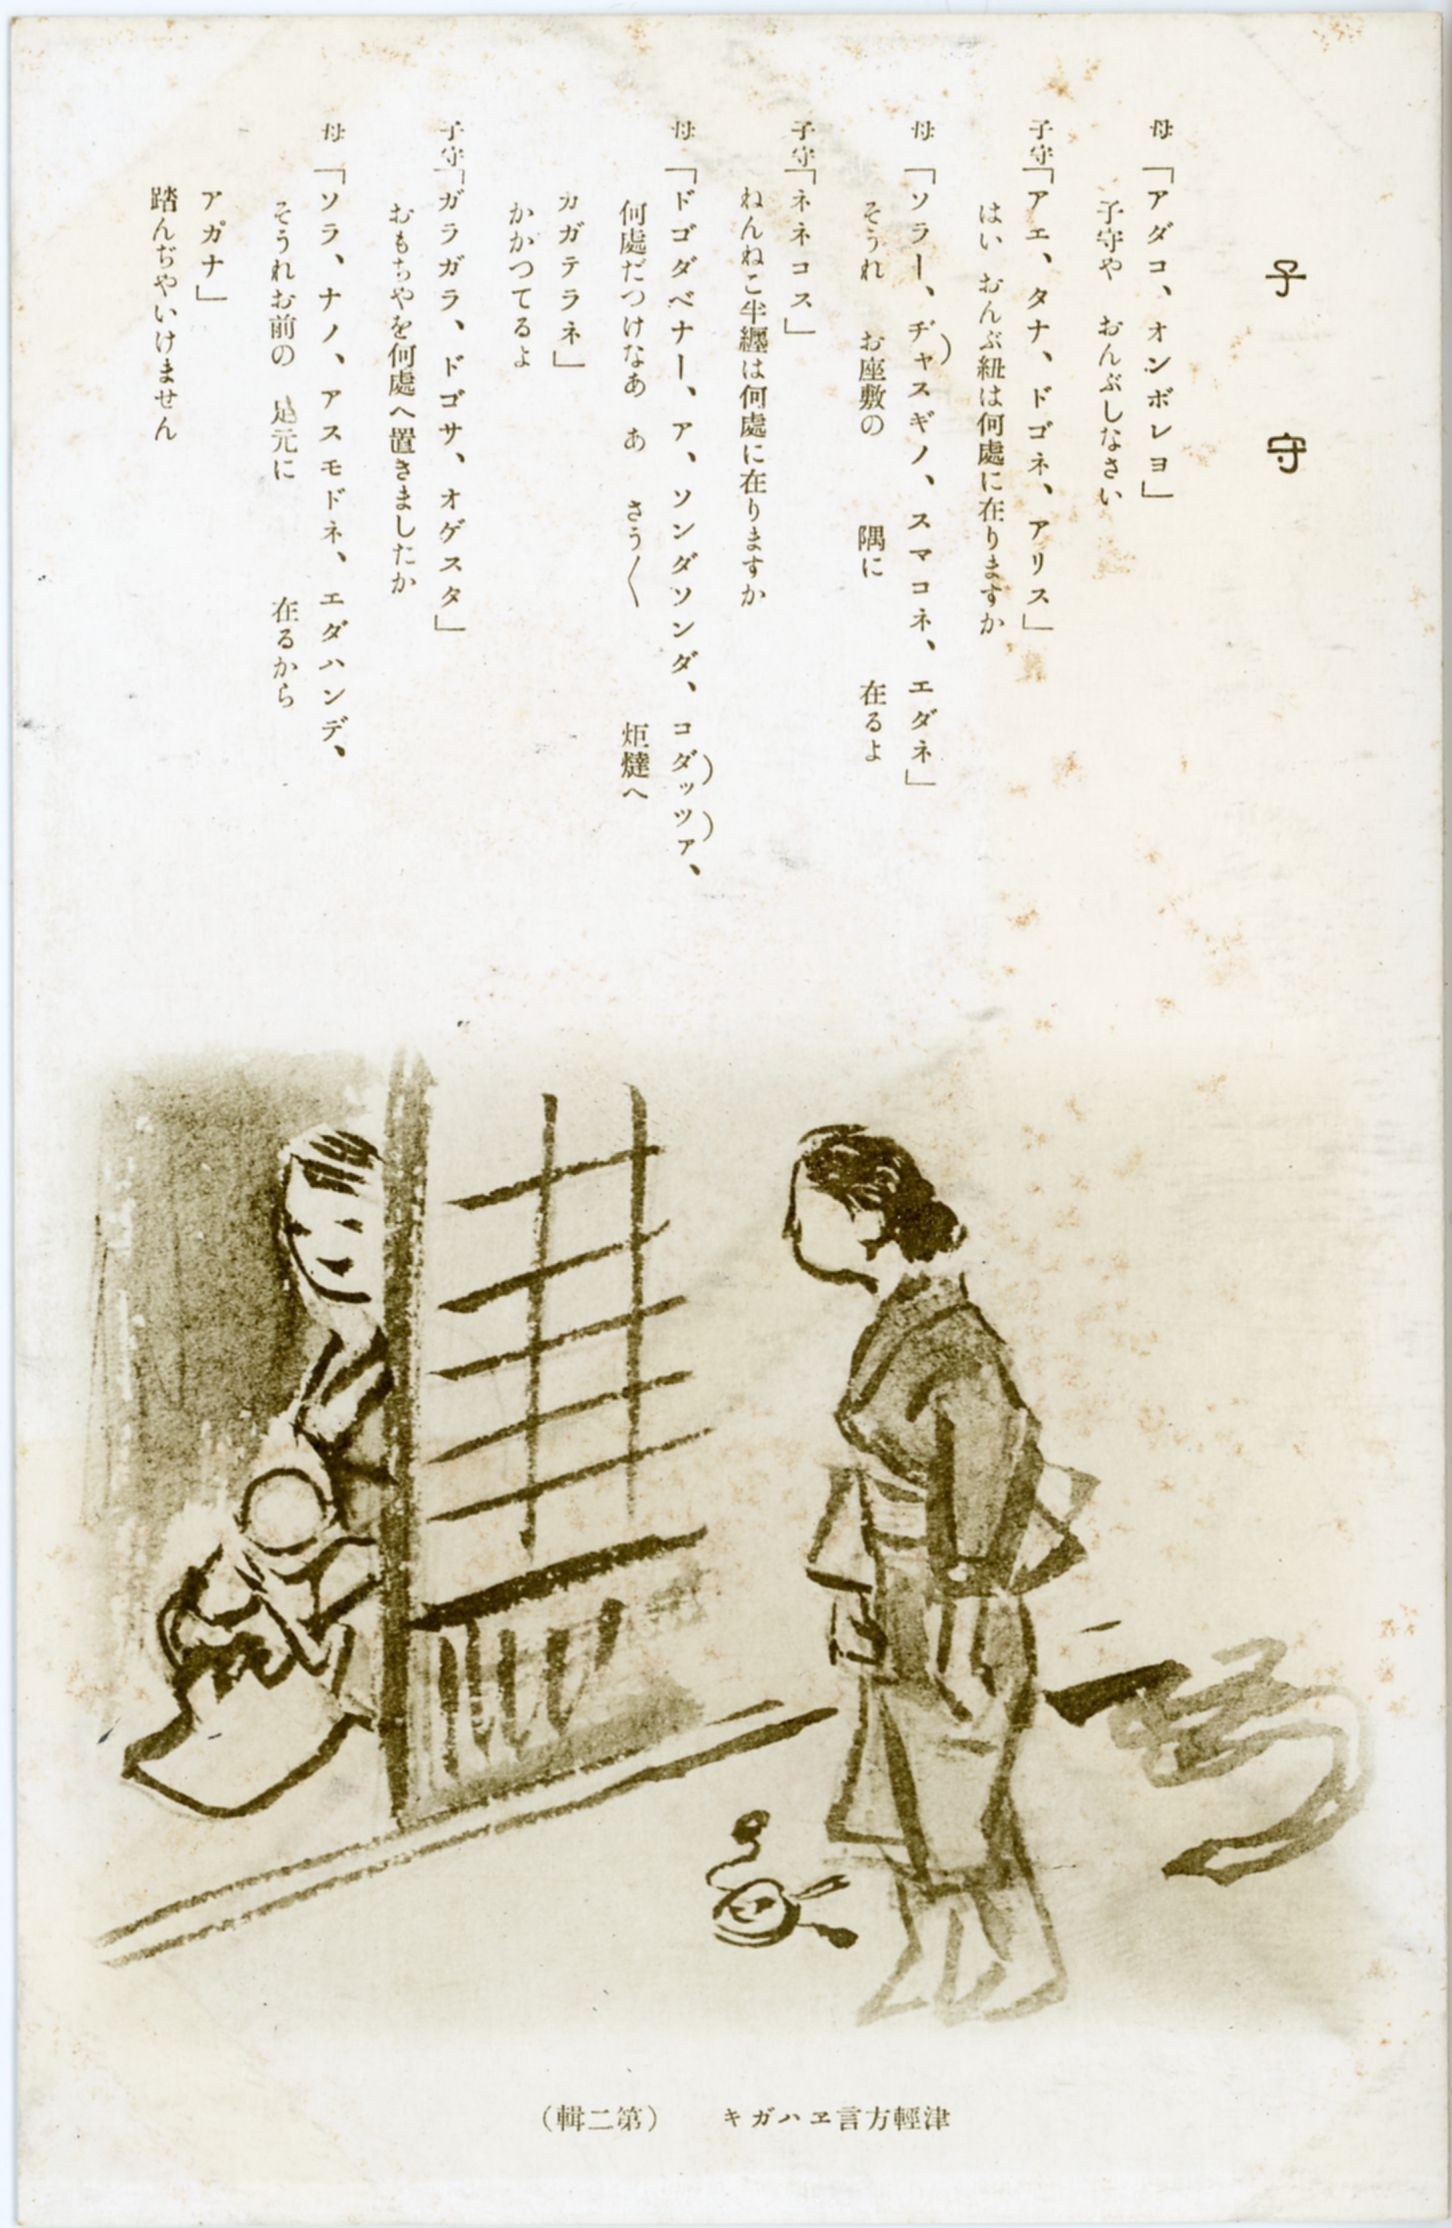 子守
母「アダコ、オンボレヨ」
子守や　おんぶしなさい
子守「アェ、タナ、ドゴネ、アリス」
はい　おんぶ紐は何處に在りますか
母「ソラー、ヂャスギノ、スマコネ、エダネ」
そうれ　お座敷の　隅に　在るよ
子守「ネネコス」
ねんねこ半纒は何處に在りますか
母「ドゴダベナー、ア、ソンダソンダ、コダッツァ、
何處だつけなあ　あ　さう〱　炬燵へ
カガテラネ」
かかつてるよ
子守「ガラガラ、ドゴサ、オゲスタ」
おもちやを何處へ置きましたか
母「ソラ、ナノ、アスモドネ、エダハンデ、
そうれお前の　足元に　在るから
アガナ」
踏んぢやいけません
津輕方言ヱハガキ　（第二輯）